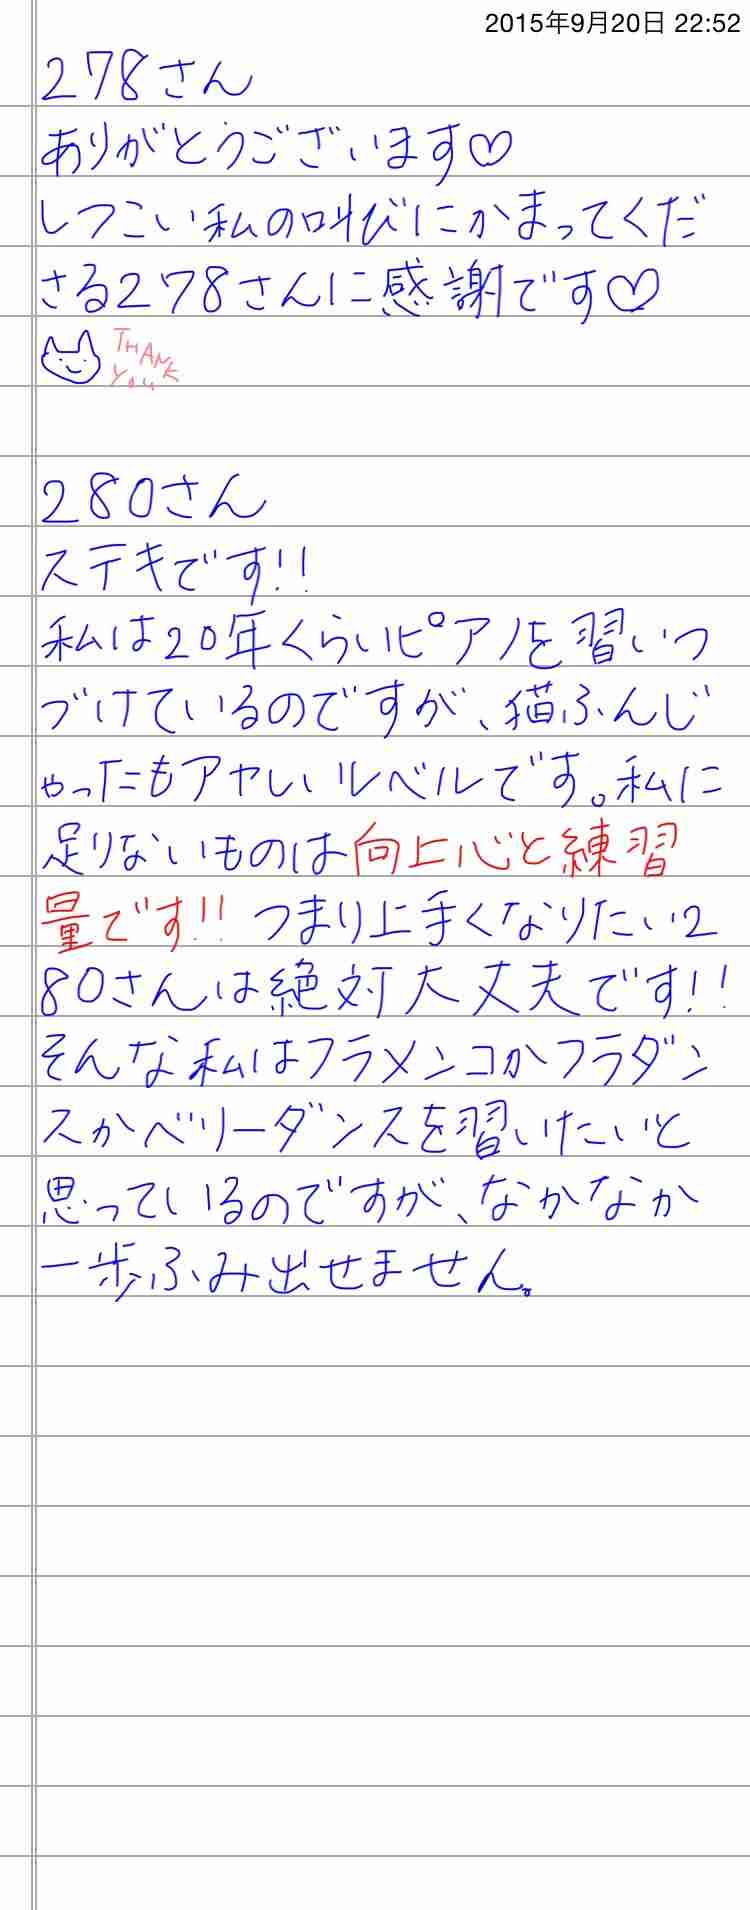 2015年9月20日 22:52
278さん
ありがとうございます♡
しつこい私の叫びにかまってくだ
さる278さんに感謝です♡
THANK
YOU
280さん
ステキです!!
私は20年くらいピアノを習いつ
づけているのですが、猫ふんじ
ゃったもアヤしいレベルです。私に
足りないものは向上心と練習
量です!! つまり上手くなりたい2
80さんは絶対大丈夫です!!
そんな私はフラメンコかフラダン
スかベリーダンスを習いたいと
思っているのですが、なかなか
一歩ふみ出せません。